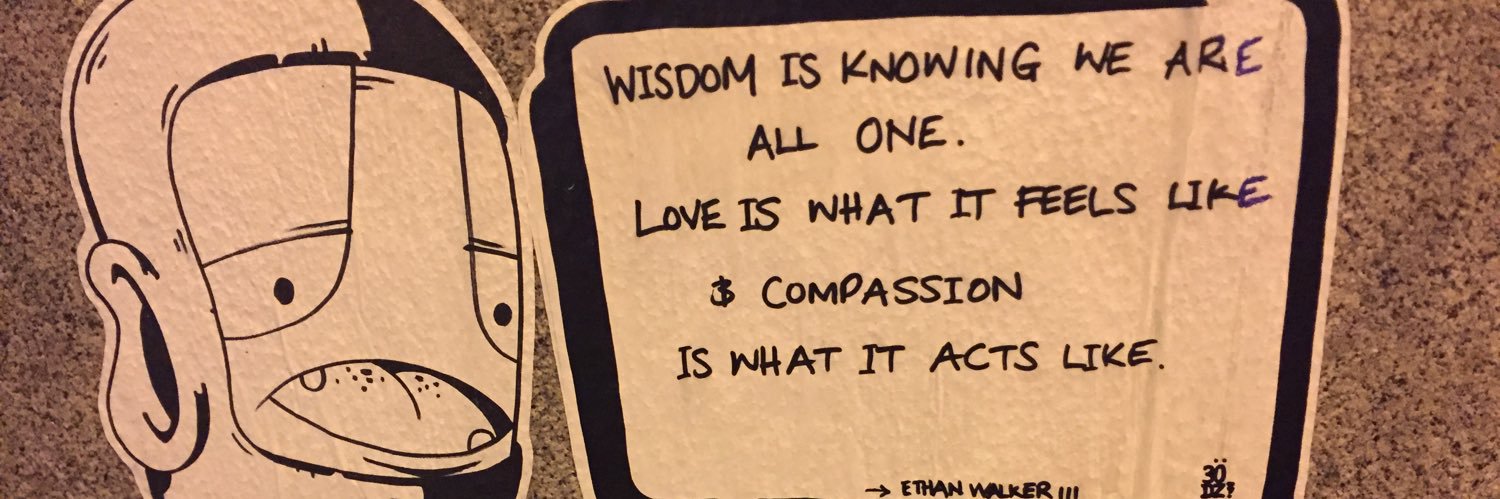 WISDOM IS KNOWING WE ARE
ALL ONE.
LOVE IS WHAT IT FEELS LIKE
& COMPASSION
IS WHAT IT ACTS LIKE.
→ ETHAN WALKER III